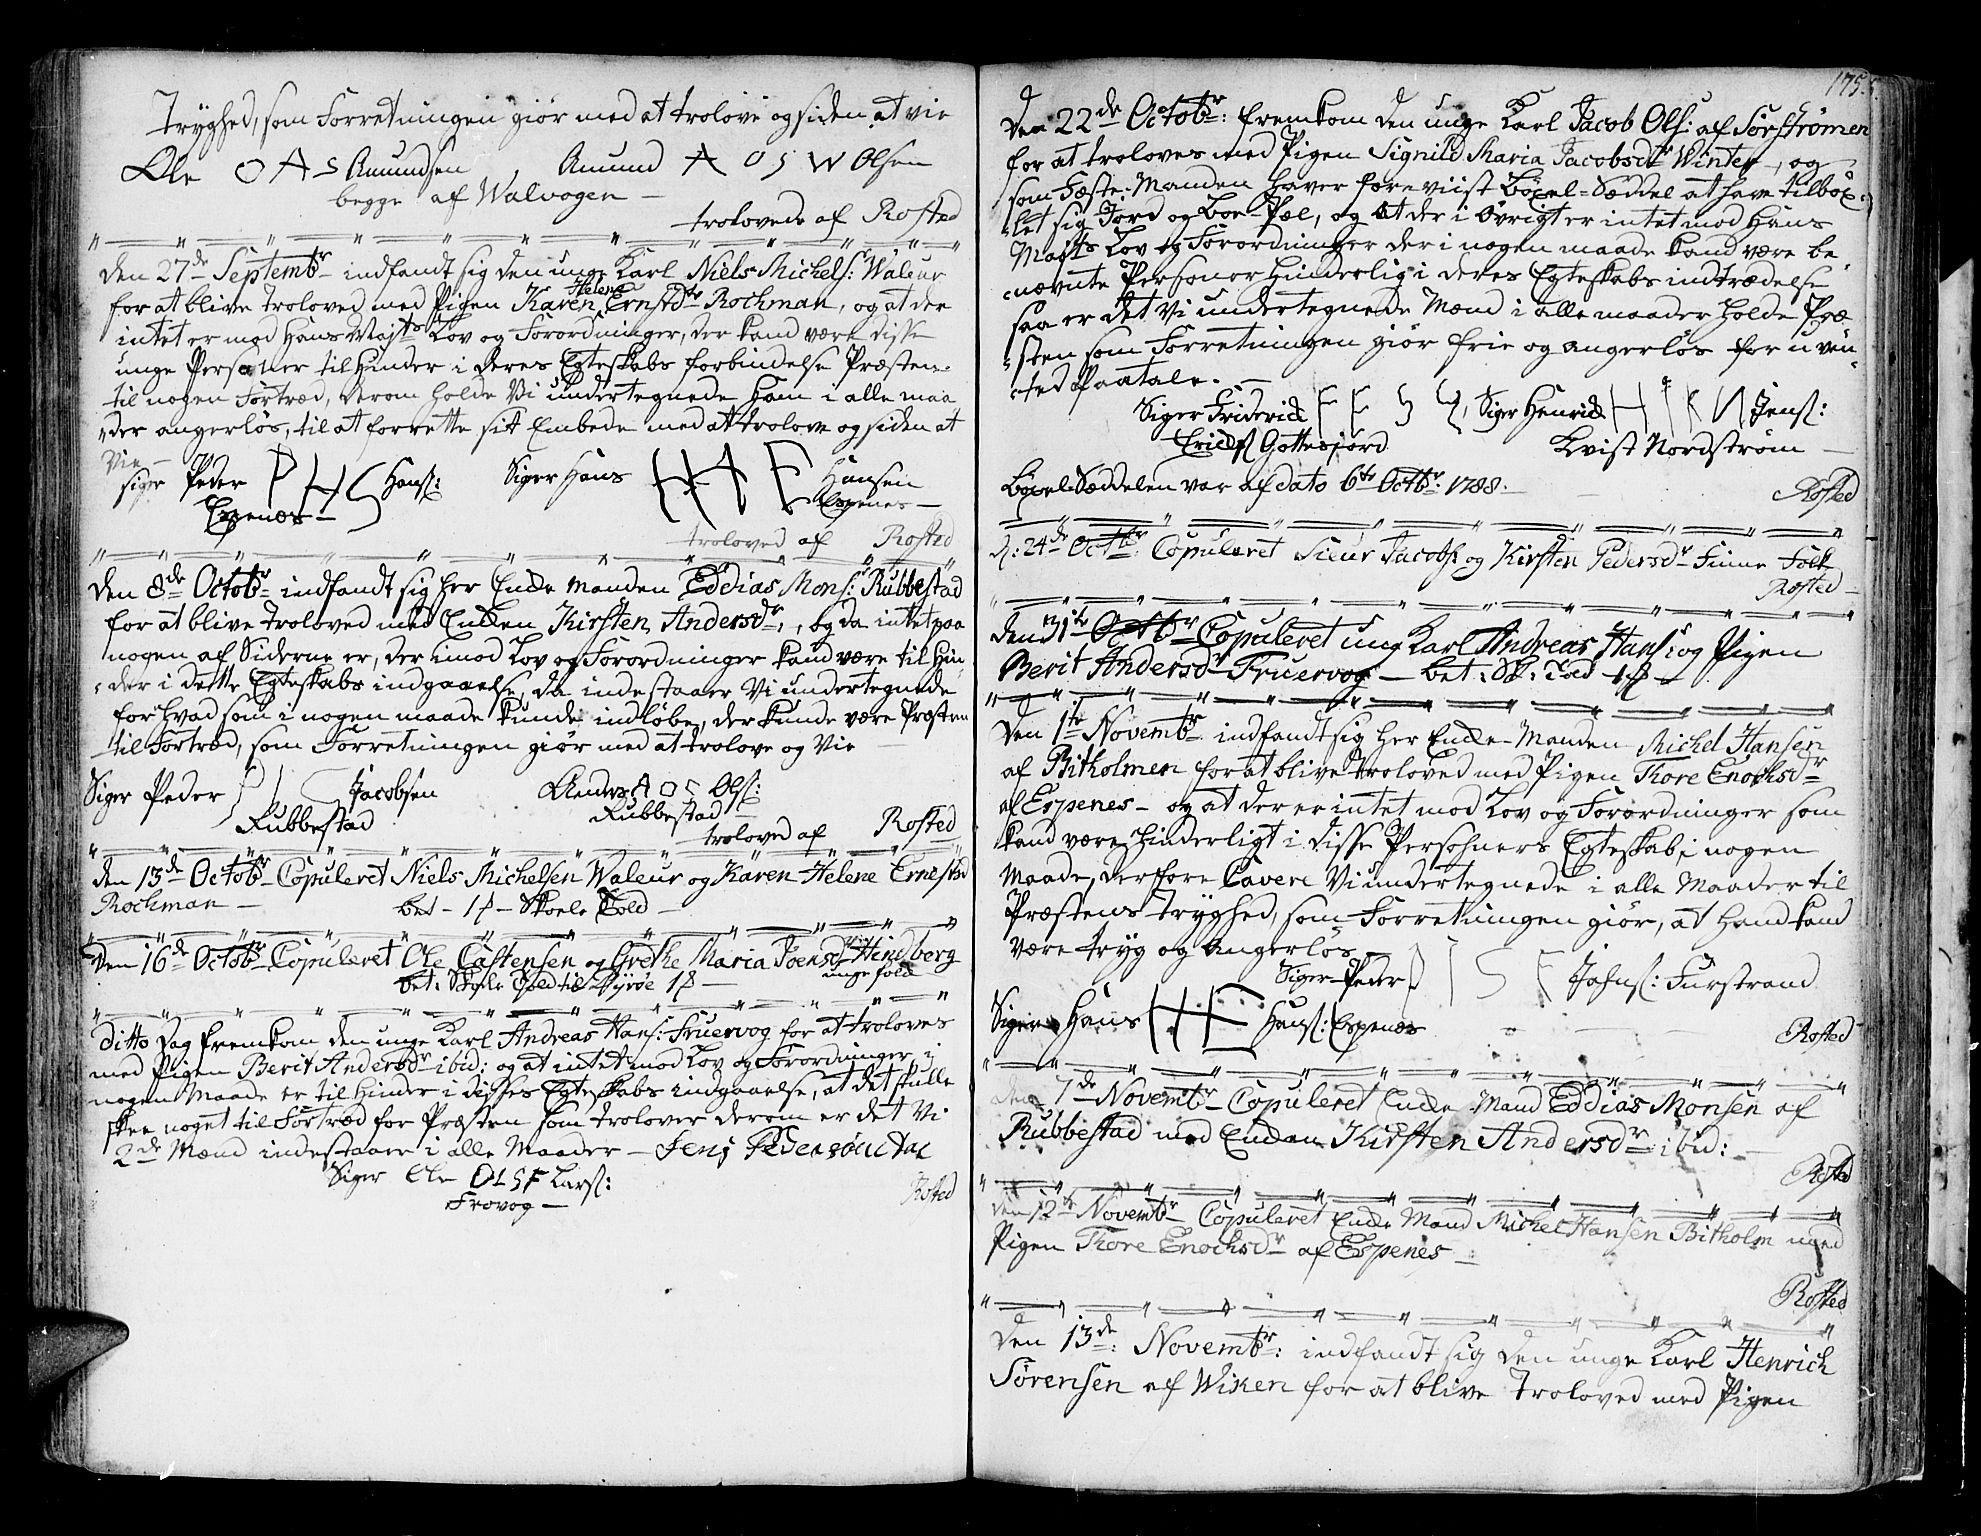 Tryghed, som Forretningen giør med at trolove og siden at vie
Ole O A S Amundsen Amund A O S W Olsen
begge af Walvogen —
trolovede af Rosted
Den 27de Septembr indfandt sig den unge Karl Niels Michels: Waleur
for at blive troloved med Pigen Karen Helena Ernstdtr Rochman, og at der
intet er mod Hans Majts Lov og Forordninger, der kand være disse
unge Personer til Hinder i deres Egteskabs forbindelse Præsten
til nogen Fortræd, derom holde Vi undertegnede Ham i alle maa
der angerløs, til at forrette sit Embede med at trolove og siden at
Vie —
siger Peder P H S Hans: Siger Hans H H E Hansen
Espenæs — Espenes —
troloved af Rosted
Den 8de Octobr indfandt sig her Enke Manden Eddias Mons: Rubbestad
for at blive troloved med Enken Kirsten Andersdr, og da intet paa
nogen af Siderne er, der imod Lov og Forordninger kand være til Hin
der i dette Egteskabs indgaaelse, da indestaaer Vi undertegnede
for hvad som i nogen maade kunde indløbe, der kunde være Præsten
til Fortræd, som Forretningen giør med at trolove og Vie —
Siger Peder P I S Jacobsen Anders A O S Ols:
Rubbestad Rubbestad —
troloved af Rosted
Den 13de Octobr Copuleret Niels Michelsen Waleur og Karen Helene Ernestsd
Rochman — bet — 1 ß — Skole Told —
Den 16de Octobr Copuleret Ole Castensen og Grethe Maria Joensdr Hindberg
bet: Skole Told til Dyrøe 1 ß — unge folk
Ditto Dag fremkom den unge Karl Andreas Hans: Fruervog for at troloves
med Pigen Berit Andersdr ibid: og at intet mod Lov og Forordninger i
nogen Maade er til Hinder i disses Egteskabs indgaaelse, at det skulle
skee noget til Fortræd for Præsten som trolover derom er det Vi
2de Mænd indestaaer i alle Maader — Jens Pedersøn
Siger Ole O L S F Lars:
Frovog — Rosted
175.
Den 22de Octobr: fremkom den unge Karl Jacob Ols: af Sørstrømen
for at troloves med Pigen Signild Maria Jacobsdr Winter, og
som Fæste-Manden haver foreviist Böxel-Sæddel at have tilböx
let sig Jord og Boe-Pæl, og at der i Øvrigt er intet mod Hans
Majts Lov og Forordninger der i nogen maade kand være be
nævnte Personer Hinderlig i deres Egteskabs indtrædelse
saa er det Vi undertegnede Mænd i alle maader holde Præ
sten som Forretningen giør frie og angerløs for u ven
ted Paatale. —
Siger Friderich F E S G, Siger Henrich H I K N Jens:
Erichs: Gottesjord Kvist Nordstrøm —
Böxel-Sæddelen var af dato 6te Octbr: 1788. Rosted
d: 24de Octbr: Copuleret Sieur Jacobs: og Kirsten Pedersdr Finne Folk
Rosted —
Den 31te Octbr Copuleret ung Karl Andreas Hans: og Pigen
Berit Andersdr Fruervog — bet: Sk: Told 1 ß —
Den 1te Novembr indfandt sig her Enke-Manden Michel Hansen
af Bitholmen for at blive troloved med Pigen Thore Enochsdr
af Espenes — og at der er intet mod Lov og Forordninger som
kand være hinderligt i disse Persohners Egteskab i nogen
Maade, derfore Cavere Vi undertegnede i alle Maader til
Præstens tryghed, som Forretningen giør, at hand kand
være tryg og angerløs —
Siger Peder P I S F Johns: Furstrand
Siger Hans H H E Hans: Espenæs Rosted
Den 7de Novembr Copuleret Enke Mand Eddias Monsen af
Rubbestad med Enken Kirsten Andersdr ibid: —
Rosted
Den 12te Novembr Copuleret Enke Mand Michel Hansen Bitholm med
Pigen Thore Enochsdr af Espenes —
Rosted
Den 13de: Novembr: indfandt sig den unge Karl Henrich
Sørensen af Wiken for at blive troloved med Pigen